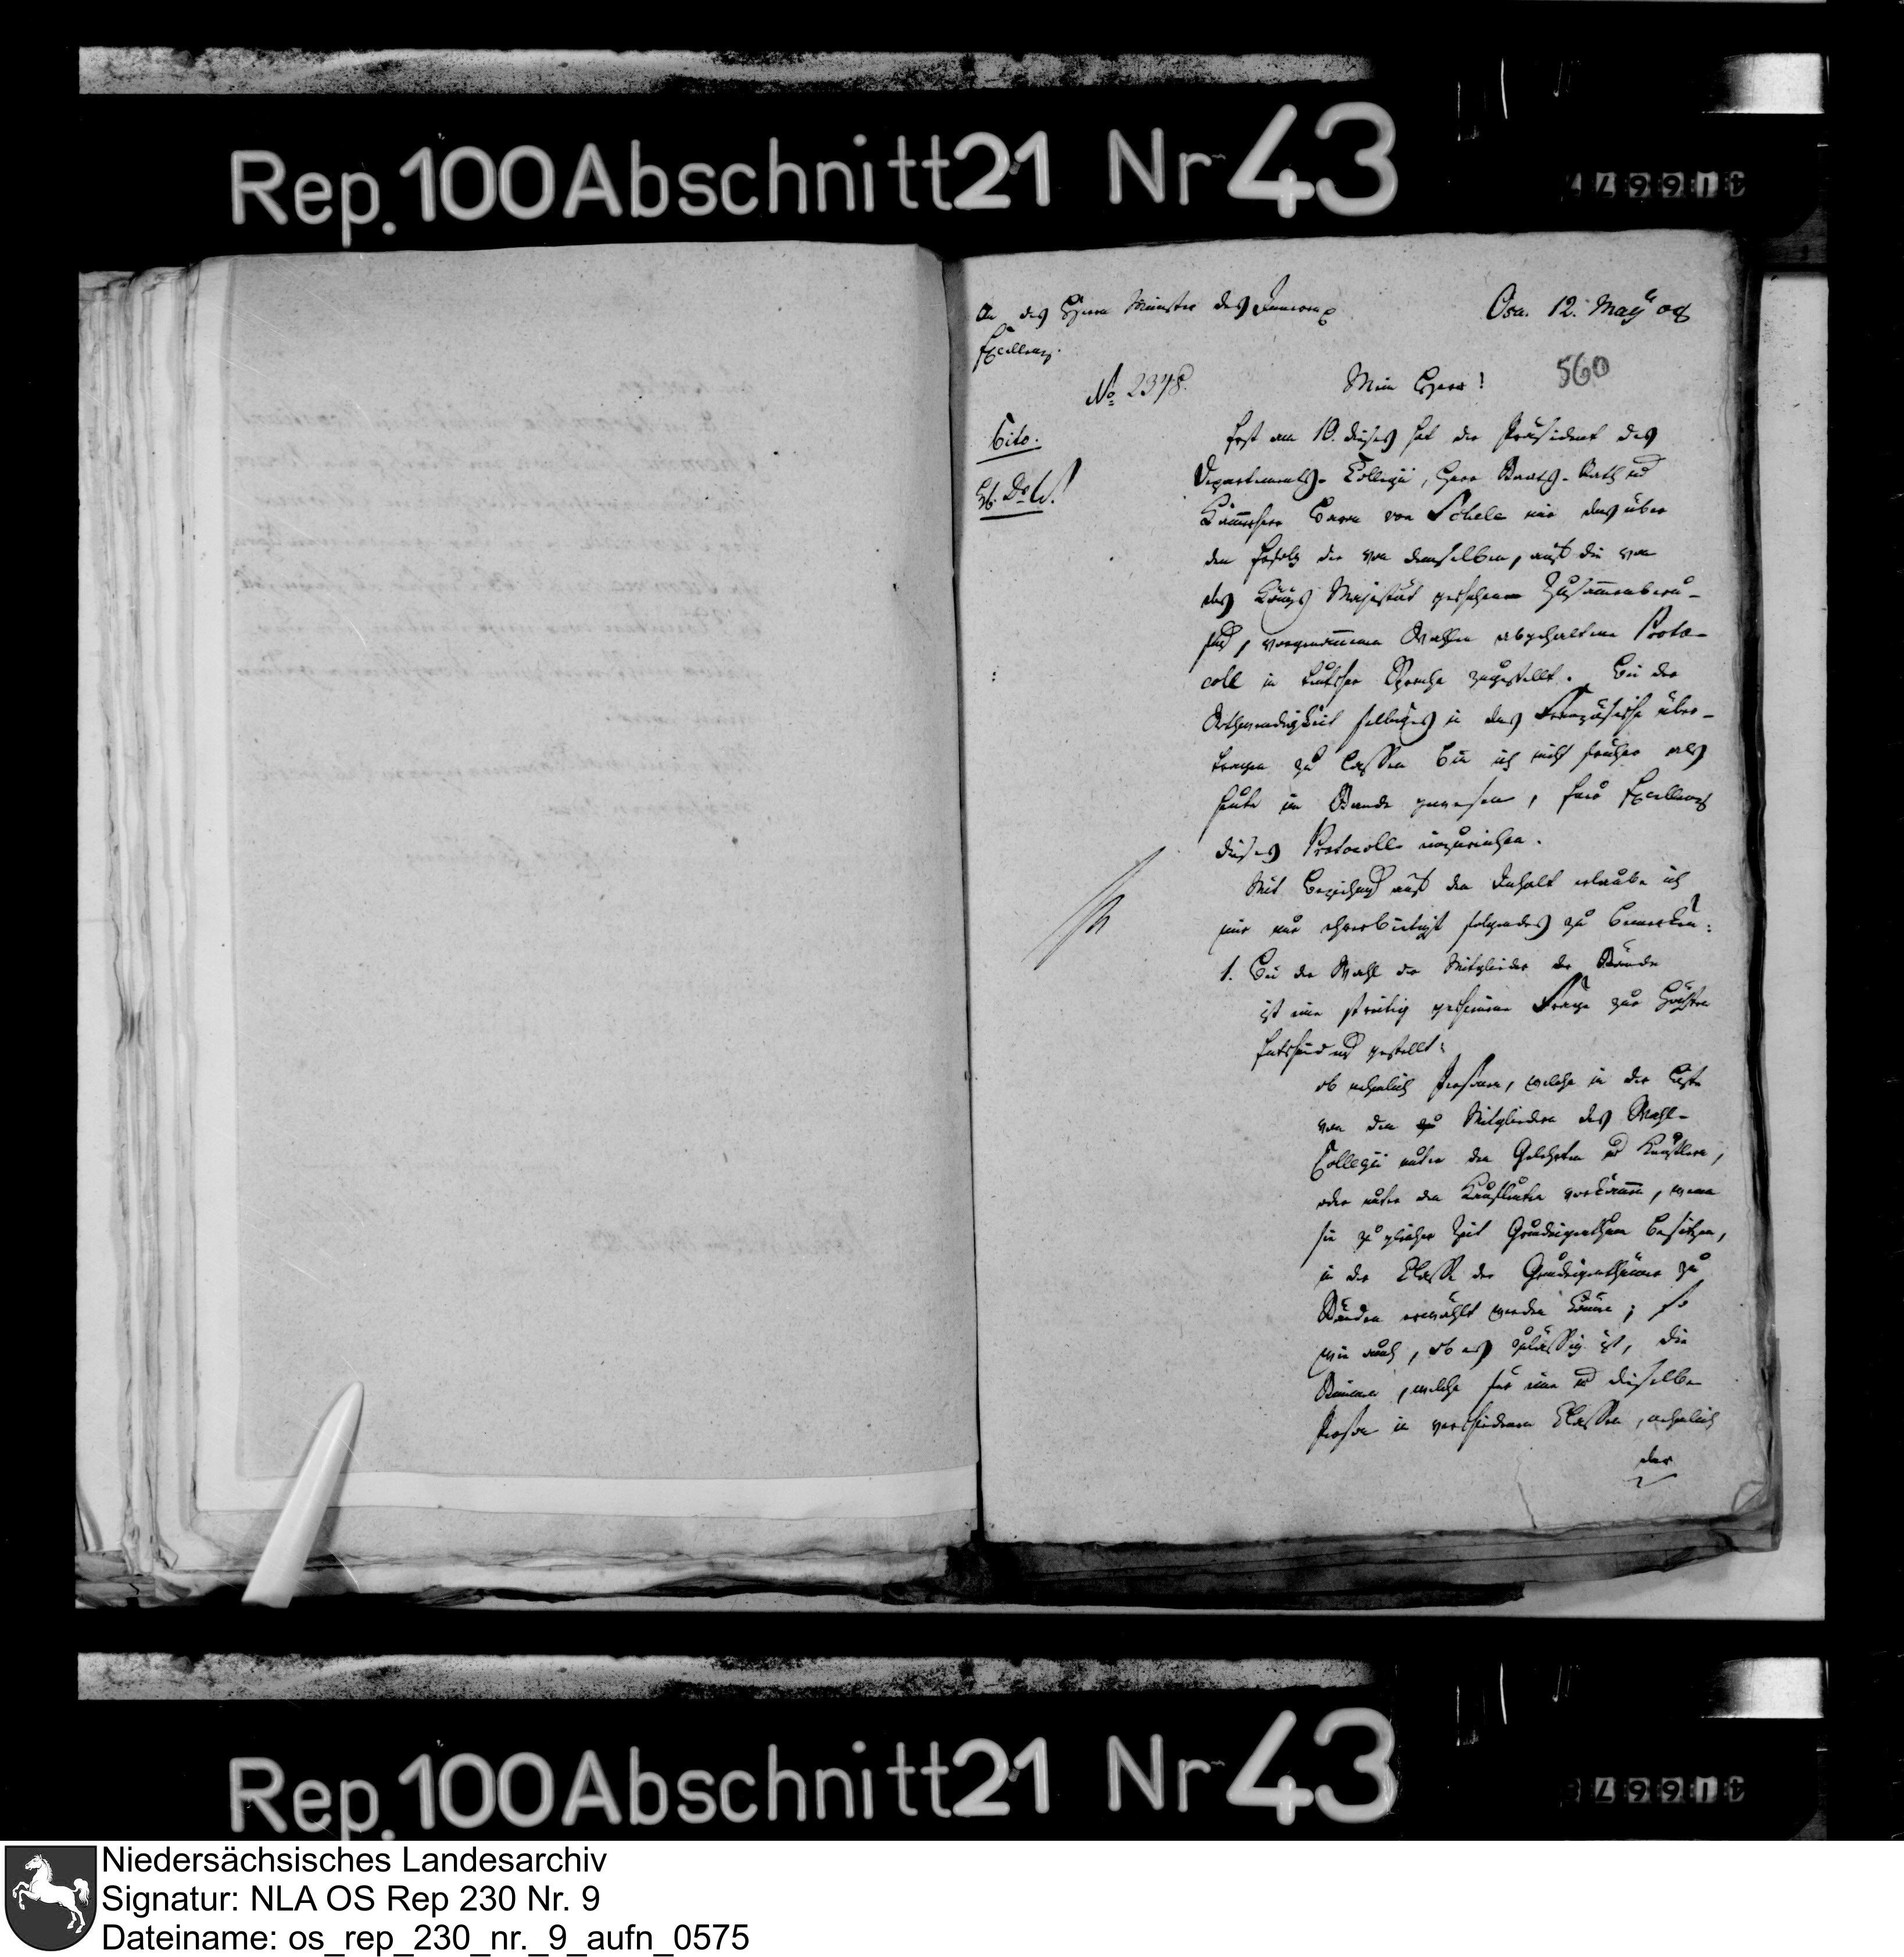 Rep. 100 Abschnitt 21 Nr 43
An des Herrn Minister des Innern
Excellenz.
Osn. 12. May 08
560
No 2378.
Mein Herr!
Cito.
Erst am 10. dieses hat der Präsident des
Departements-Collegii, Herr Staats-Rath und
Kammerherr Baron von Schele mir das über
den Erfolg der von demselben, auf die von
des Königs Majestät geschehene Zusammenberu-
fung, vorgenommenen Wahlen abgehaltene Proto-
coll in teutscher Sprache zugestellt. Bei der
Nothwendigkeit selbiges in das Französische über-
tragen zu lassen bin ich nicht früher als
heute im Stande gewesen, Euer Excellenz
dieses Protocoll einzureichen.
Mit Beziehung auf den Inhalt erlaube ich
mir nur ehrerbietigst folgendes zu bemerken:
1. Bei der Wahl der Mitglieder der Stände
ist eine streitig geschienene Frage zur höchsten
Entscheidung gestellt:
ob nehmlich Personen, welche in der Liste
von den Mitgliedern des Wahl-
Collegii unter den Gelehrten und Künstlern,
oder unter den Kaufleuten vorkommen, wenn
sie zu gleicher Zeit Grundeigenthum besitzen,
in der Classe der Grundeigenthümer zu
Ständen erwählt werden können; so
wie auch, ob es zulässig ist, die
Stimmen, welche für eine und dieselbe
Person in verschiedenen Classen, nehmlich
der
Rep. 100 Abschnitt 21 Nr 43
Niedersächsisches Landesarchiv
Signatur: NLA OS Rep 230 Nr. 9
Dateiname: os_rep_230_nr._9_aufn_0575